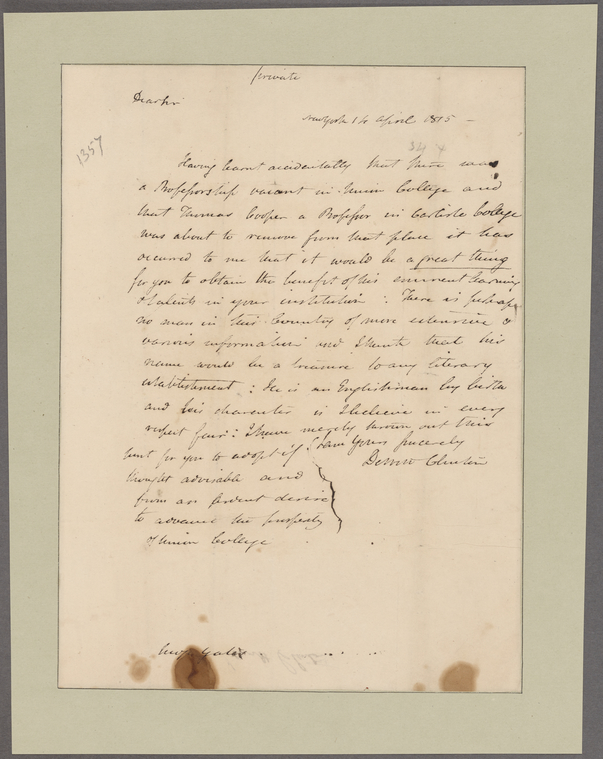 private
Dear Sir
New York 14 April 1815 –
1357
Having learnt accidentally that there was
a Professorship vacant in Union College and
that Thomas Cooper a Professor in Carlisle College
was about to remove from that place it has
occurred to me that it would be a great thing
for you to obtain the benefit of his eminent learning
& talents in your institution : There is perhaps
no man in this Country of more extensive &
various information and I think that his
name would be a treasure to any literary
establishment : He is an Englishman by birth
and his character is I believe in every
respect fair : I have merely thrown out this
hint for you to adopt if
thought advisable and
from an ardent desire
to advance the prosperity
of Union College
I am Yours Sincerely
DeWitt Clinton
Yates